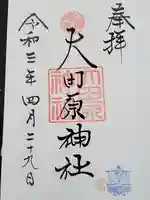 奉拝
大町原神社
令和三年四月二十九日